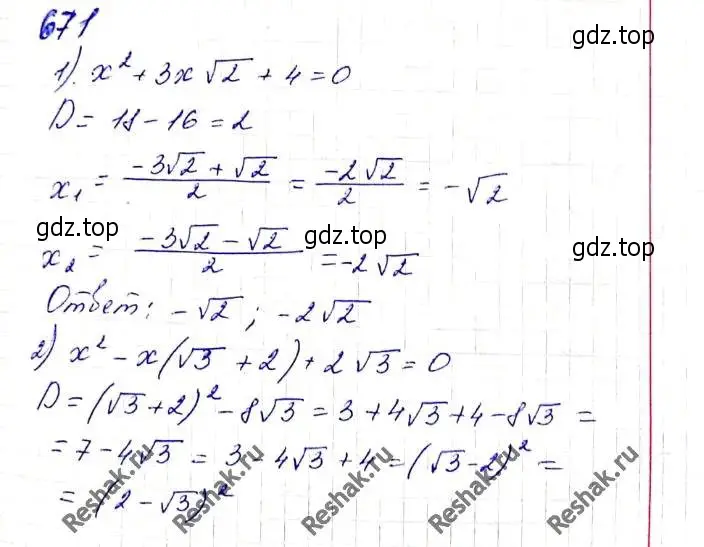 671
gdz.top
gdz.top
1). x² + 3x√2 + 4 = 0
D = 18 - 16 = 2
x₁ = (-3√2 + √2)/2 = (-2√2)/2 = -√2
gdz.top
gdz.top
gdz.top
x₂ = (-3√2 - √2)/2 = -2√2
Ответ: -√2 ; -2√2
2) x² - x(√3 + 2) + 2√3 = 0
D = (√3 + 2)² - 8√3 = 3 + 4√3 + 4 - 8√3 =
= 7 - 4√3 = 3 - 4√3 + 4 = (√3 - 2)² =
= (2 - √3)²
Reshak.ru
Reshak.ru
Reshak.ru
Reshak.ru